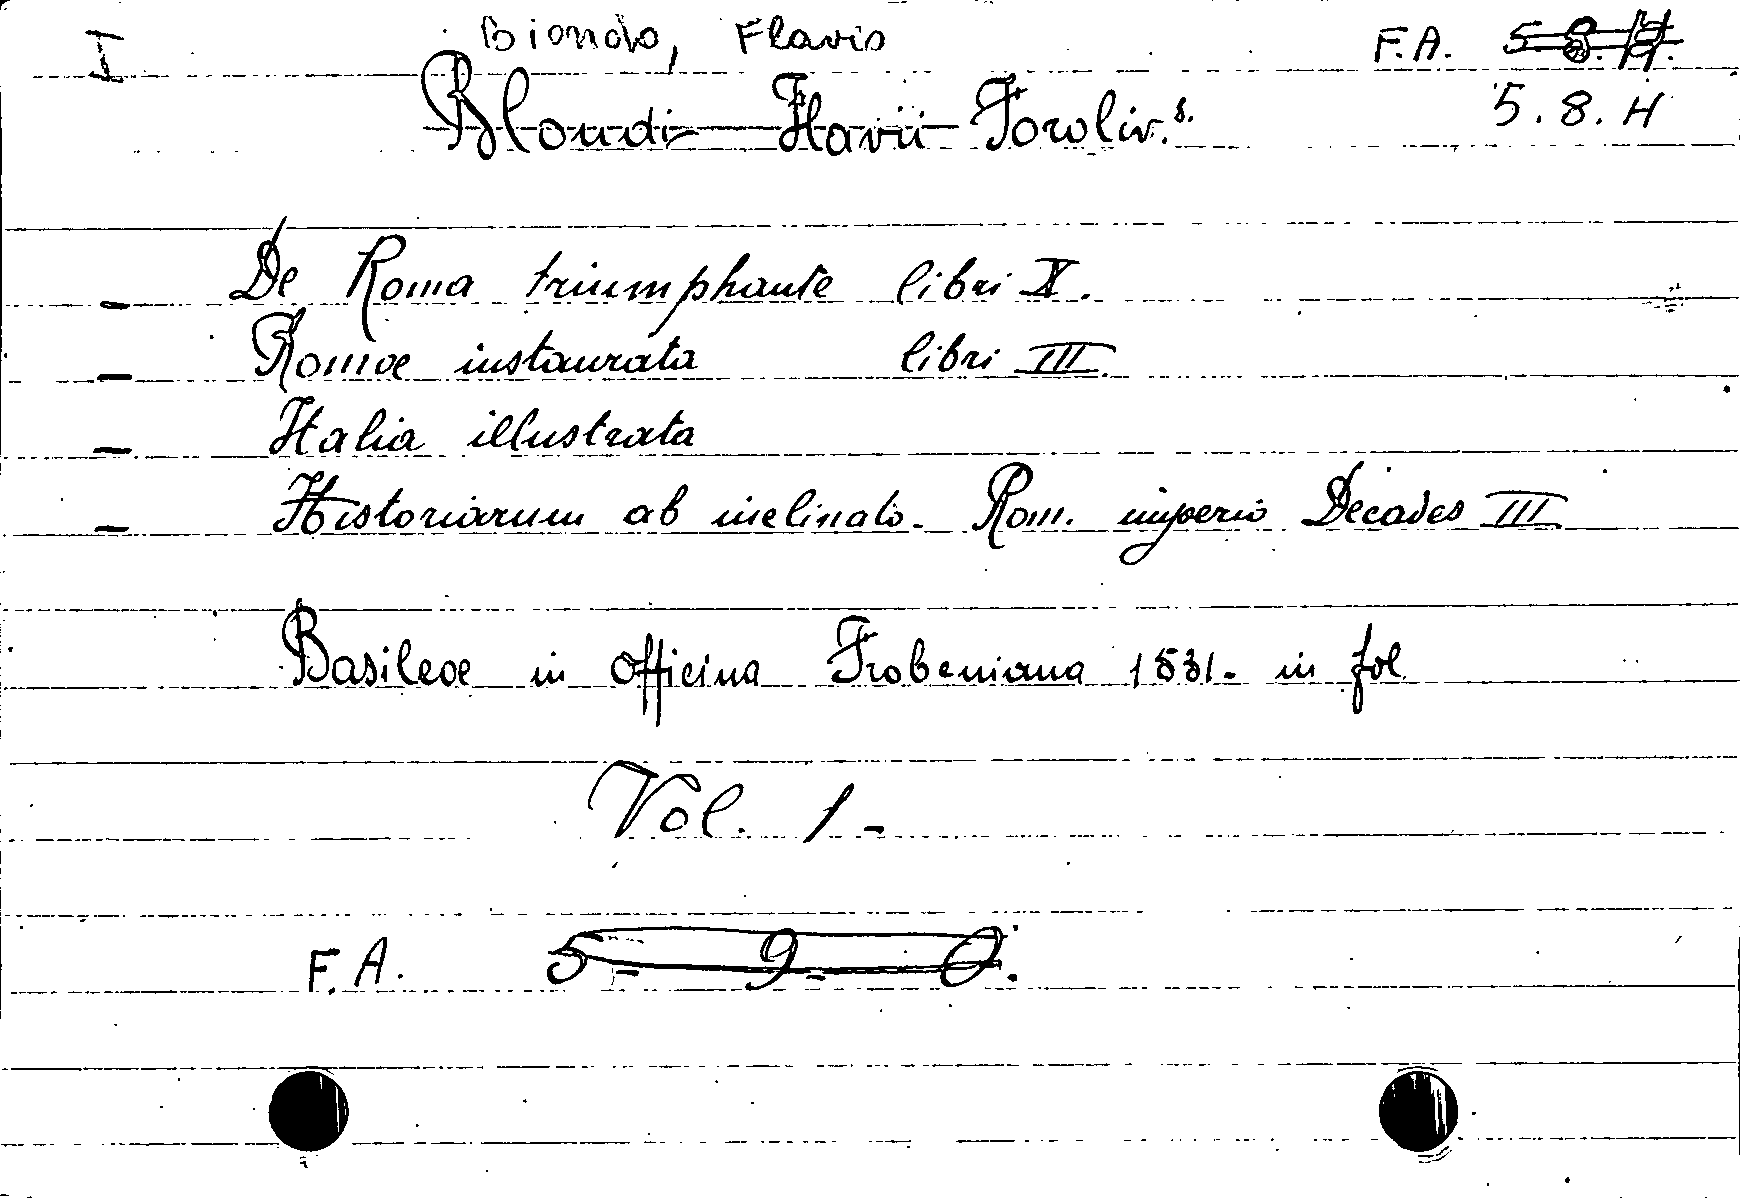 I Biondo, Flavio F.A. 5.8.H.
Blondi Flavii Foroliv.s. 5.8.H
- De Roma triumphante libri X.
- Romae instaurata libri III.
- Italia illustrata
- Historiarum ab inclinato. Rom. imperio Decades III
Basileae in officina Frobeniana 1531. in fol
Vol. 1-
F.A. 5-9-0.